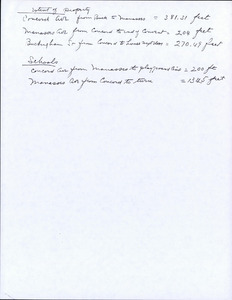 Extent of Property
Concord Ave from Buck to Manassas = 381.21 feet
Manassas Ave from Concord to end of Convent = 208 feet
Buckingham Dr from Concord to = 270.49 feet
Schools
Concord Ave from Manassas to playground = 200 ft
Manassas Ave from Concord to = 1345 feet